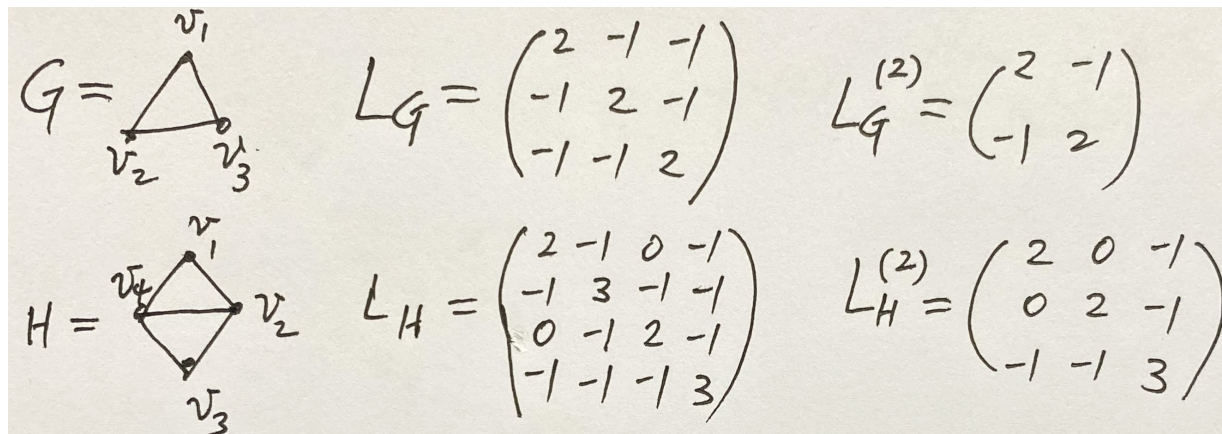 G = v₁ v₂ v₃ L_G = \begin{pmatrix} 2 & -1 & -1 \\ -1 & 2 & -1 \\ -1 & -1 & 2 \end{pmatrix} L_G^{(2)} = \begin{pmatrix} 2 & -1 \\ -1 & 2 \end{pmatrix}
H = v₁ v₄ v₂ v₃ L_H = \begin{pmatrix} 2 & -1 & 0 & -1 \\ -1 & 3 & -1 & -1 \\ 0 & -1 & 2 & -1 \\ -1 & -1 & -1 & 3 \end{pmatrix} L_H^{(2)} = \begin{pmatrix} 2 & 0 & -1 \\ 0 & 2 & -1 \\ -1 & -1 & 3 \end{pmatrix}